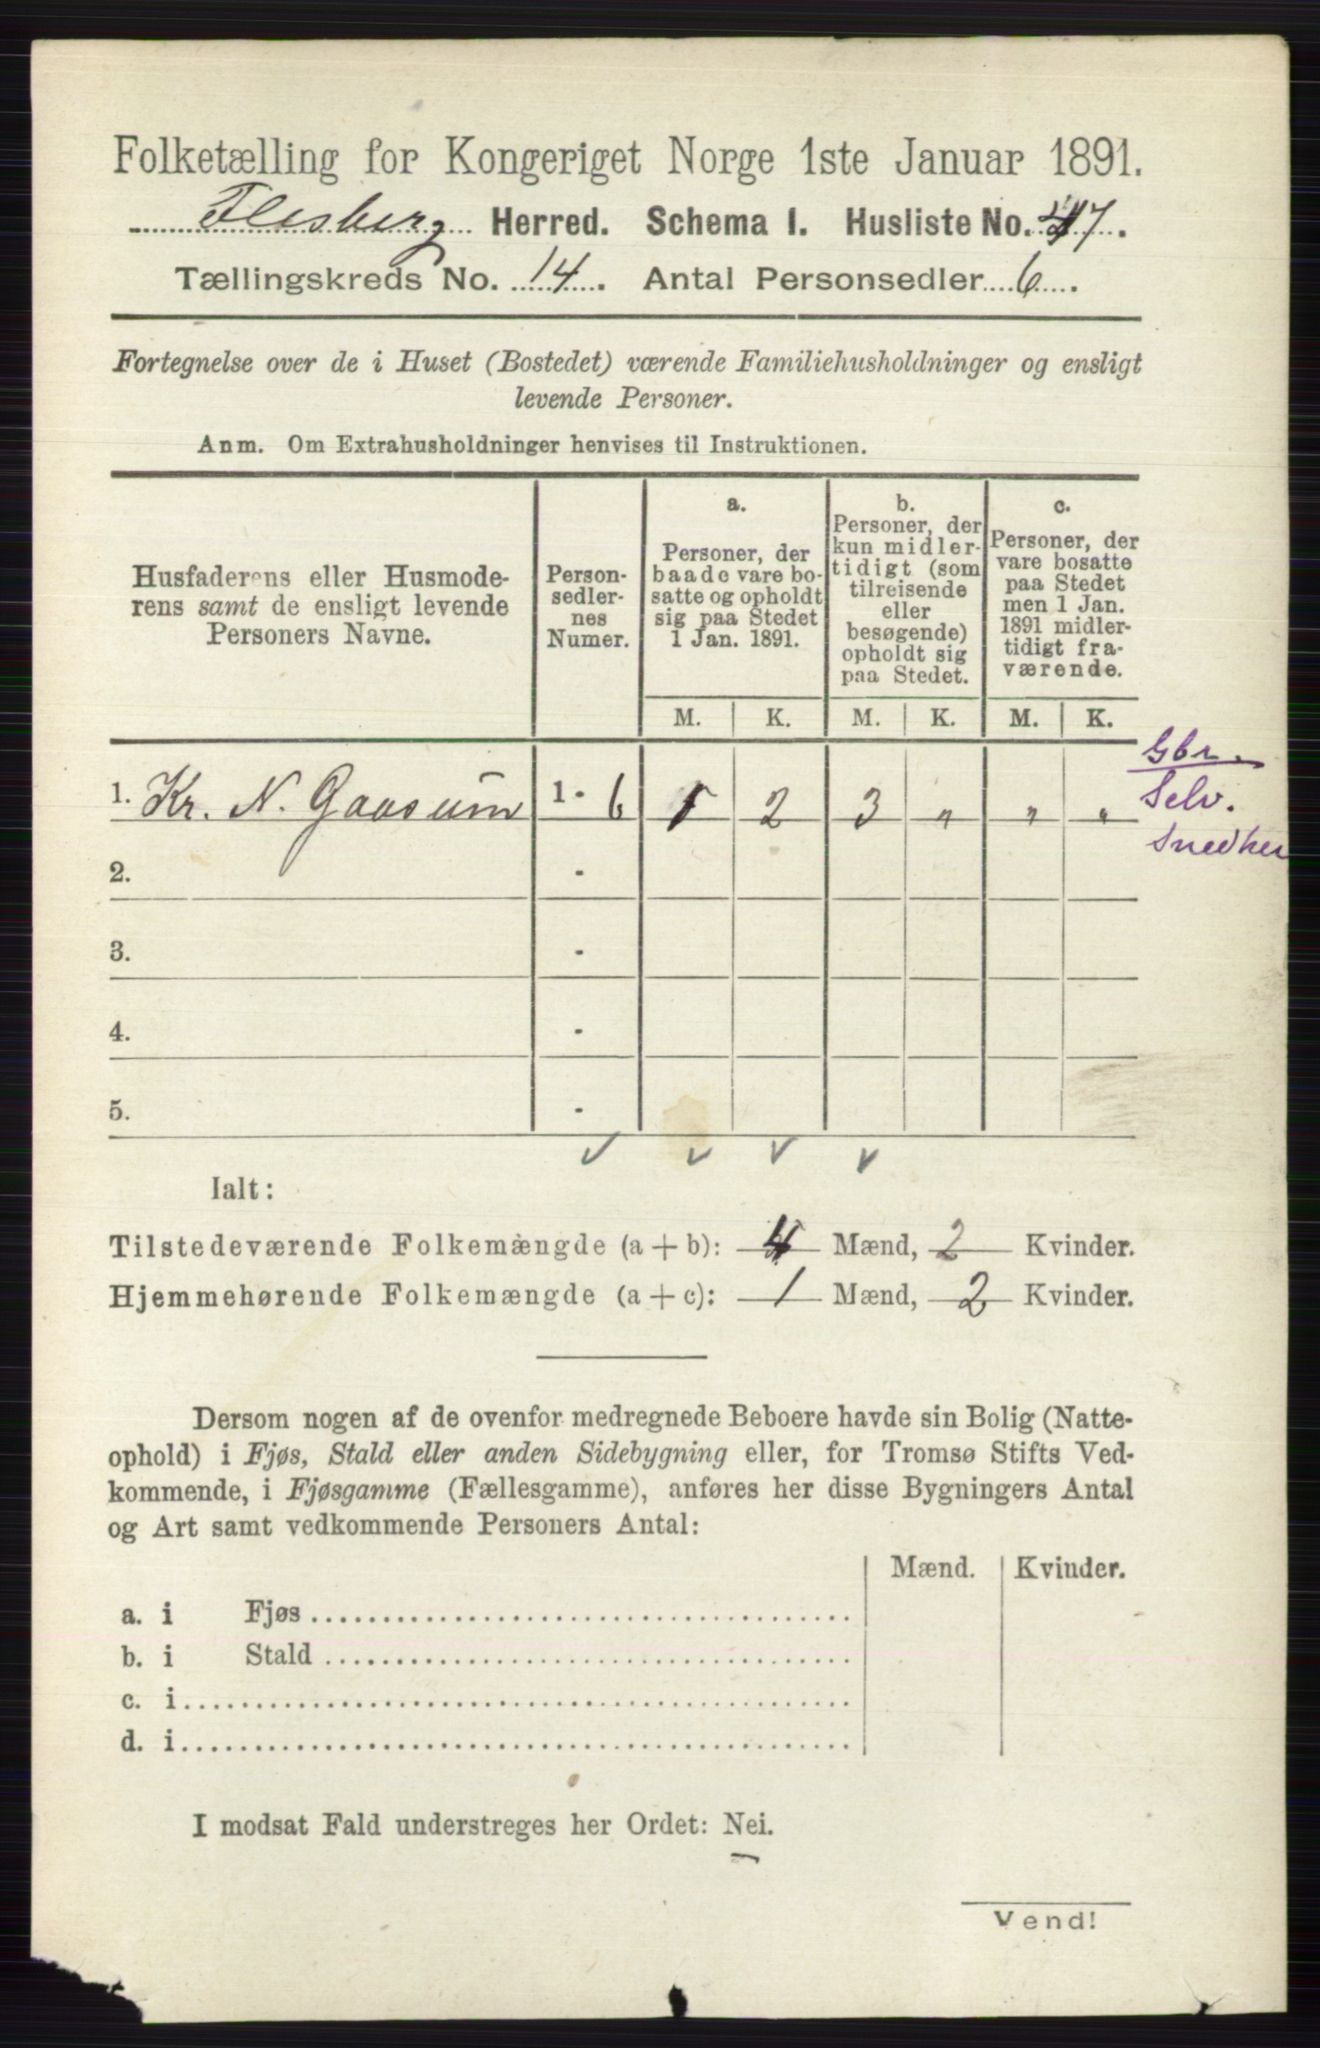 Folketælling for Kongeriget Norge 1ste Januar 1891.
Flesberg Herred. Schema I. Husliste No. 47.
Tællingskreds No. 14. Antal Personsedler 6.
Fortegnelse over de i Huset (Bostedet) værende Familiehusholdninger og ensligt
levende Personer.
Anm. Om Extrahusholdninger henvises til Instruktionen.
Husfaderens eller Husmode-
rens samt de ensligt levende
Personers Navne.
Person-
sedler-
nes
Numer.
a.
Personer, der
baade vare bo-
satte og opholdt
sig paa Stedet
1 Jan. 1891.
b.
Personer, der
kun midler-
tidigt (som
tilreisende
eller
besøgende)
opholdt sig
paa Stedet.
c.
Personer, der
vare bosatte
paa Stedet
men 1 Jan.
1891 midler-
tidigt fra-
værende.
M. K. M. K. M. K.
Gbr.
1. Kr. N. Gaasum 1 - 6 1 2 3 " " "
Selv.
Snedker
2. -
3. -
4. -
5. -
Ialt:
Tilstedeværende Folkemængde (a + b): 4 Mænd, 2 Kvinder.
Hjemmehørende Folkemængde (a + c): 1 Mænd, 2 Kvinder.
Dersom nogen af de ovenfor medregnede Beboere havde sin Bolig (Natte-
ophold) i Fjøs, Stald eller anden Sidebygning eller, for Tromsø Stifts Ved-
kommende, i Fjøsgamme (Fællesgamme), anføres her disse Bygningers Antal
og Art samt vedkommende Personers Antal:
Mænd. Kvinder.
a. i Fjøs
b. i Stald
c. i
d. i
I modsat Fald understreges her Ordet: Nei.
Vend!